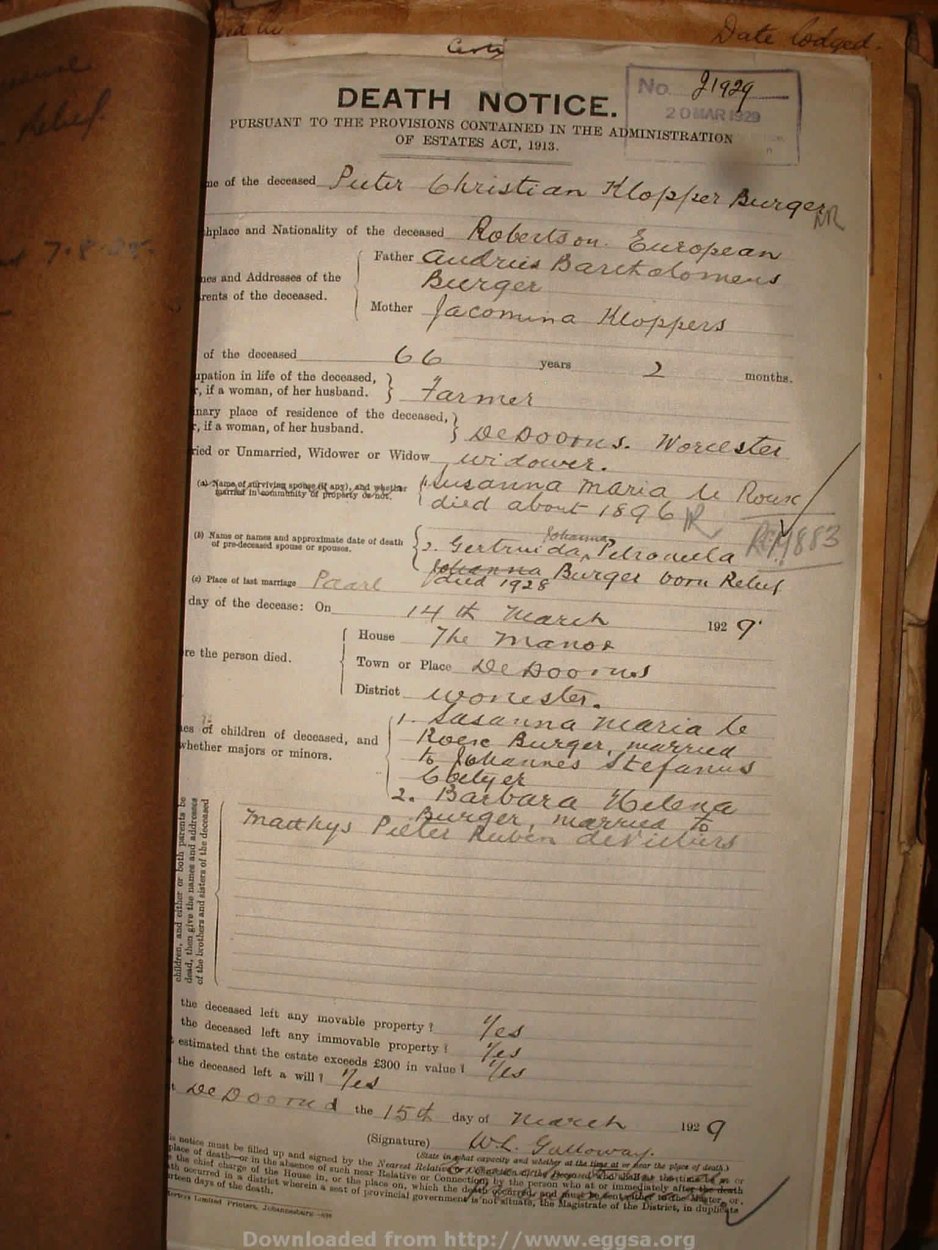 Date lodged.
Relief
7-8-
DEATH NOTICE.
No. 21929
20 MAR 1929
PURSUANT TO THE PROVISIONS CONTAINED IN THE ADMINISTRATION
OF ESTATES ACT, 1913.
me of the deceased Pieter Christian Klopper Burger
hplace and Nationality of the deceased Robertson. European
Father Andries Bartholomeus
Burger
nes and Addresses of the
rents of the deceased.
Mother Jacomina Kloppers
of the deceased 66 years 2 months.
upation in life of the deceased,
r, if a woman, of her husband. Farmer
inary place of residence of the deceased,
r, if a woman, of her husband. De Doorns. Worcester
ried or Unmarried, Widower or Widow widower.
(a) Name of surviving spouse (if any), and whether
married in community of property or not.
1. Susanna Maria le Roux
died about 1896
(b) Name or names and approximate date of death
of pre-deceased spouse or spouses.
2. Gertruida Johanna Petronella
Johanna Burger born Relief
died 1928
1883
(c) Place of last marriage Paarl
day of the decease: On 14th March 1929
House The Manor
re the person died.
Town or Place De Doorns
District Worcester.
es of children of deceased, and
whether majors or minors.
1. Susanna Maria le
Roux Burger, married
to Johannes Stefanus
2. Barbara Helena
Burger, married to
Matthys Pieter Ruben de Villiers
children, and either or both parents be
dead, then give the names and addresses
of the brothers and sisters of the deceased
the deceased left any movable property? Yes
the deceased left any immovable property? Yes
estimated that the estate exceeds £300 in value? Yes
the deceased left a will? Yes
t De Doorns the 15th day of March 1929
(Signature) W.L. Galloway.
(State in what capacity and whether at the time at or near the place of death.)
is notice must be filled up and signed by the Nearest Relative or Connection of the Deceased, who shall at the time be at or
place of death—or in the absence of such near Relative or Connection, by the person who at or immediately after the death
the chief charge of the House in, or the place on, which the death occurred and must be sent either to the Master, or,
th occurred in a district wherein a seat of provincial government is not situate, the Magistrate of the District, in duplicate
rteen days of the death.
Limited Printers, Johannesburg
Downloaded from http://www.eggsa.org